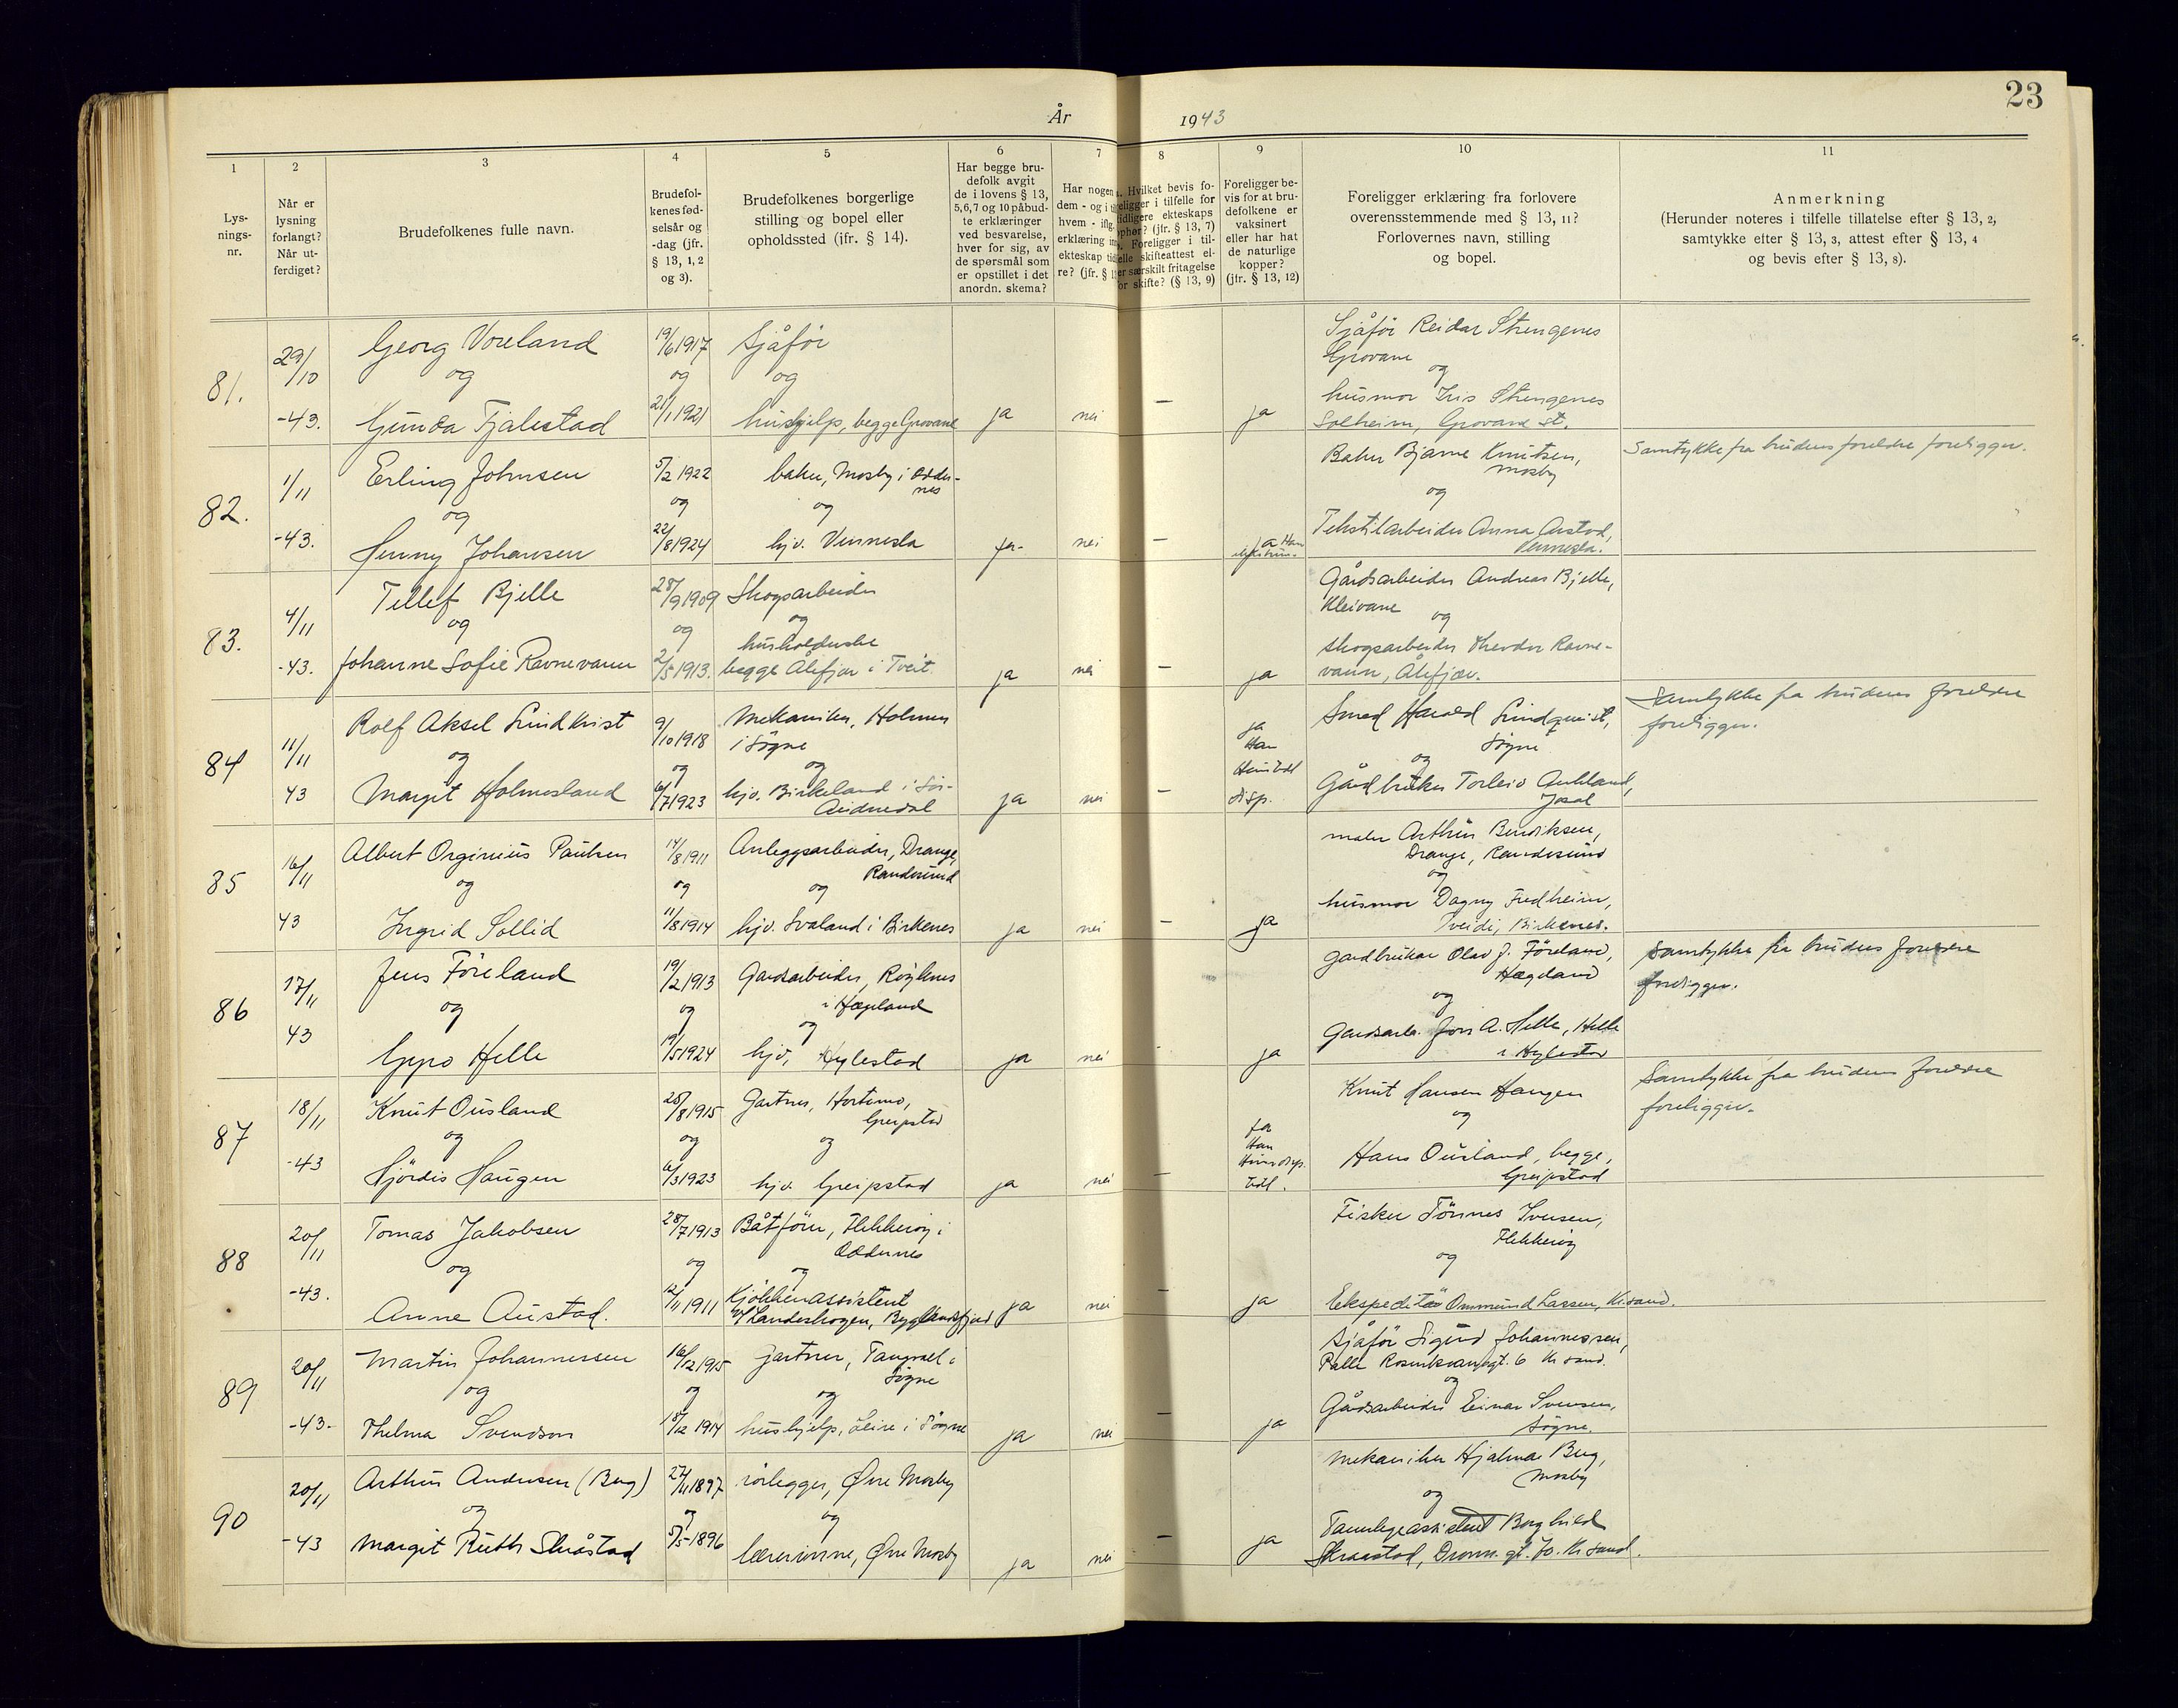 23
År 1943
1 2 3 4 5 6 7 8 9 10 11
Lys-
nings-
nr.
Når er
lysning
forlangt?
Når ut-
ferdiget?
Brudefolkenes fulle navn.
Brudefol-
kenes fød-
selsår og
-dag (jfr.
§ 13, 1, 2
og 3).
Brudefolkenes borgerlige
stilling og bopel eller
opholdssted (jfr. § 14).
Har begge bru-
defolk avgit
de i lovens § 13,
5, 6, 7 og 10 påbud-
te erklæringer
ved besvarelse,
hver for sig, av
de spørsmål som
er opstillet i det
anordn. skema?
Har nogen
dem - og i
hvem - iflg.
erklæring
ekteskap
re? (jfr. §
Hvilket bevis fo-
religger i tilfelle for
tidligere ekteskaps
ophør? (jfr. § 13, 7)
Foreligger i til-
felle skifteattest el-
ler særskilt fritagelse
for skifte? (§ 13, 9)
Foreligger be-
vis for at bru-
defolkene er
vaksinert
eller har hat
de naturlige
kopper?
(jfr. § 13, 12)
Foreligger erklæring fra forlovere
overensstemmende med § 13, 11?
Forlovernes navn, stilling
og bopel.
Anmerkning
(Herunder noteres i tilfelle tillatelse efter § 13, 2,
samtykke efter § 13, 3, attest efter § 13, 4
og bevis efter § 13, 8).
81.
29/10
-43.
Georg Voreland
og
Gunda Tjalestad
19/6 1917
og
21/1 1921
Sjåfør
og
hushjelp, begge Grovane
ja
nei
—
ja
Sjåfør Reidar Strengenes
Grovane
og
husmor Iris Strengenes
Solheim, Grovane st.
82.
1/11
-43.
Erling Johnsen
og
Henny Johansen
5/2 1922
og
22/8 1924
baker, Mosby i Odder-
nes
og
hjv. Vennesla
ja-
nei
—
ja Han
Baker Bjarne Knutsen,
Mosby
og
Tekstilarbeider Anna Aastad,
Vennesla.
Samtykke fra brudens foreldre foreligger.
83.
4/11
-43.
Tellef Bjelle
og
Johanne Sofie Ravnevann
28/9 1909
og
2/5 1913.
Skogsarbeider
og
husholderske
begge Ålefjær i Tveit.
ja
nei
—
ja
Gårdsarbeider Andreas Bjelle,
Kleivane
og
skogsarbeider Theodor Ravne-
vann, Ålefjær.
84
11/11
43
Rolf Aksel Lindkvist
og
Margit Holmesland
9/10 1918
og
6/7 1923
Mekaniker, Holmen
i Søgne
og
hjv. Birkeland i Sør-
Audnedal
ja
nei
—
ja
Han
disp.
Smed Harald Lindqvist,
Søgne
og
Gårdbruker Torleiv
Samtykke fra brudens foreldre
foreligger.
85
16/11
43
Albert Orginius Paulsen
og
Ingrid Sollid
14/8 1911
og
11/8 1914
Anleggsarbeider, Drange,
Randesund
og
hjv. Svaland i Birkenes
ja
nei
—
ja
maler Arthur Bendiksen,
Drange, Randesund
og
husmor Dagny Fredheim,
Tveide, Birkenes.
86
17/11
43
Jens Föreland
og
Gyro Helle
19/2 1913
og
19/5 1924
Gardsarbeider, Röyknes
i Hægeland
og
hjv, Hylestad
ja
nei
ja
gardbruker Olav J. Föreland,
Hægeland
og
Gardsarb. Jon A. Helle, Helle
i Hylestad
Samtykke fra brudens foreldre
foreligger.
87
18/11
-43
Knut Ousland
og
Hjördis Haugen
28/8 1915
og
6/3 1923
Gartner, Hortemo,
Greipstad
og
hjv. Greipstad
ja
nei
—
ja
Han
Knut Hansen Haugen
og
Hans Ousland, begge,
Greipstad
Samtykke fra brudens foreldre
foreligger.
88
20/11
-43.
Tomas Jakobsen
og
Anne Austad.
28/7 1913
og
12/11 1911
Båtfører, Flekkerøy i
Oddernes
og
Kjökkenassistent
v/ Landeskogen, Byglandsfjord
ja
nei
—
ja
Fisker Tönnes Iversen,
Flekkeröy
og
Ekspeditör Ommund Lassen, Kr.sand.
89
20/11
-43-
Martin Johannessen
og
Thelma Svendsen
16/12 1915
og
18/12 1914
gartner, Tangvall i
Søgne
og
hushjelp, Leire i Søgne
ja
nei
—
ja
Sjåfør Sigurd Johannessen,
Palle Rosenkransgt. 6 Kr sand.
og
Gårdsarbeider Einar Svensen,
Søgne.
90
20/11
-43
Arthur Andersen (Berg)
og
Margit Ruth Skråstad
27/11 1897
og
5/5-1896
rørlegger, Øvre Mosby
og
lærerinne, Øvre Mosby
ja
nei
—
ja
Mekaniker Hjalmar Berg,
Mosby
og
Tannlegeassistent Borghild
Skraastad, Dronn. gt. 70. Kr sand.